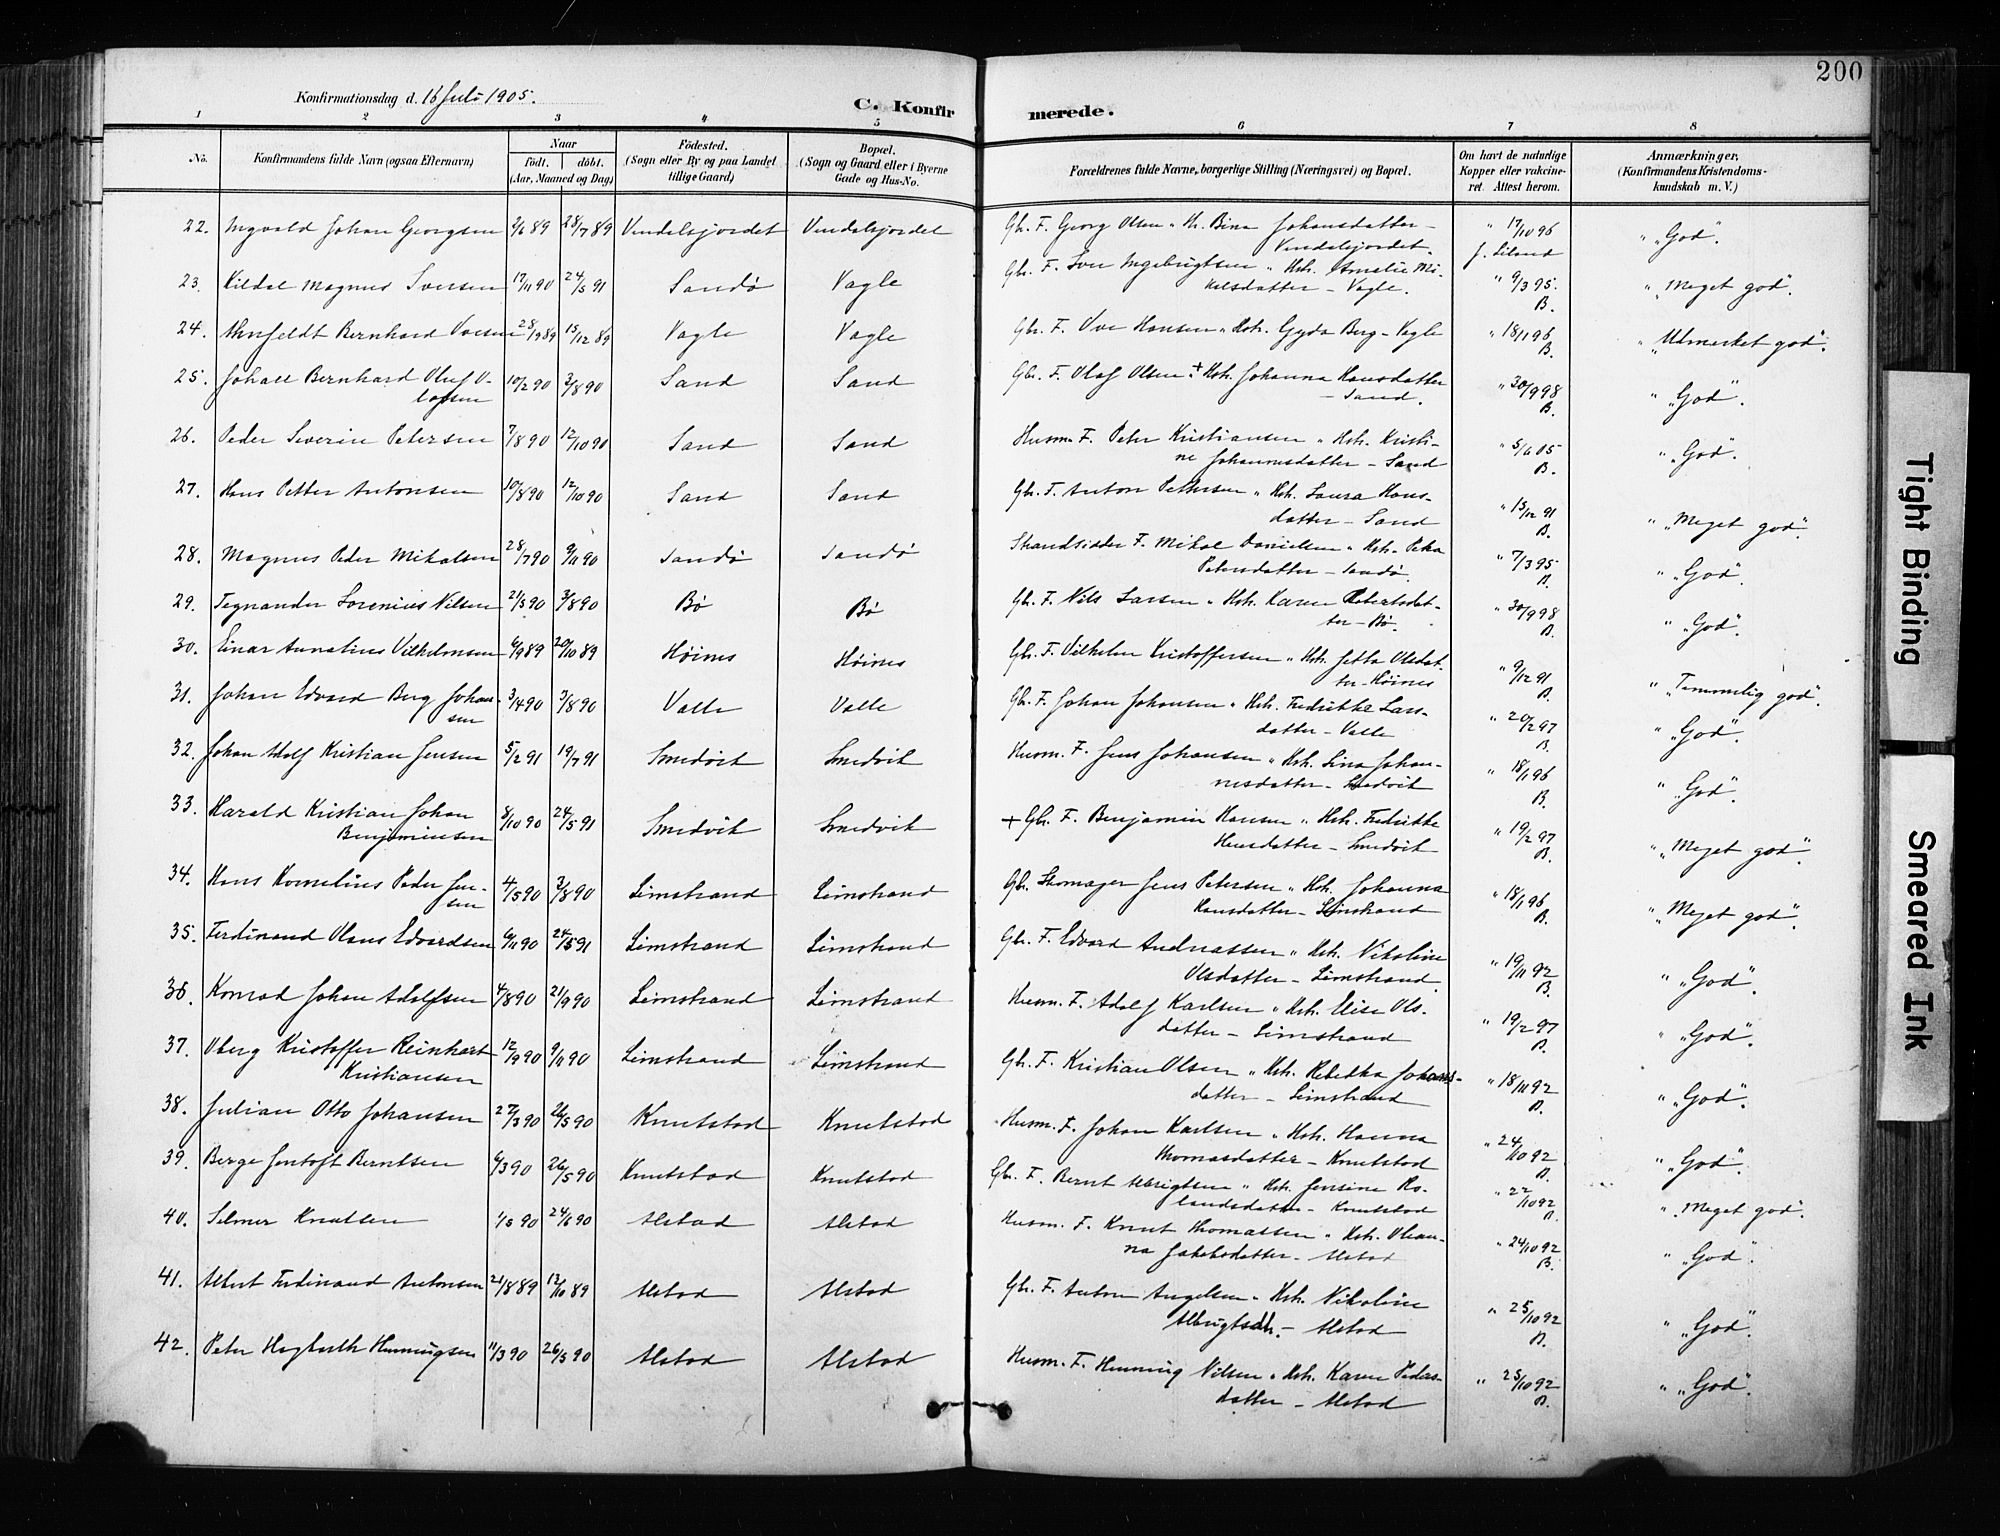 200
Konfirmationsdag d. 16 Juli 1905.
C. Konfirmerede.
1 2 3 4 5 6 7 8
No. Konfirmandens fulde Navn (ogsaa Efternavn) Naar født. døbt. (Aar, Maaned og Dag) Fødested. (Sogn eller By og paa Landet tillige Gaard) Bopæl. (Sogn og Gaard eller i Byerne Gade og Hus-No.) Forældrenes fulde Navne, borgerlige Stilling (Næringsvei) og Bopæl. Om havt de naturlige Kopper eller vakcineret. Attest herom. Anmærkninger. (Konfirmandens Kristendomskundskab m. V.)
22. Ingvald Johan Georgsen 2/6 89 28/7 89 Gbr. F. Georg Olsen " H. Bina Johansdatter " 17/10 96 " "God".
23. Kildal Magnus Iversen 17/11 90 24/5 91 Sandø Vagle Gbr. F. Iver Ingebrigtsen " Hst. Amalie Mikelsdatter – Vagle. " 9/3 95. B. " "Meget god".
24. Arnfeldt Bernhard Uvesen 28/9 89 15/12 89 Vagle Vagle Gbr. F. Uve Hansen " Hst. Gyda Berg – Vagle " 18/1 96 B. " "Utmerket god".
25. Johall Bernhard Oluf Olafsen 10/2 90 3/8 90 Sand Sand Gbr. F. Olaf Olsen + Hst. Johanna Hansdatter – Sand. " 30/9 98 B. " "God".
26. Peder Severin Petersen 7/8 90 12/10 90 Sand Sand Husm. F. Peter Kristiansen " Hst. Kristine Johannesdatter – Sand " 5/6 05 B. " "God".
27. Hans Petter Antonsen 10/8 90 12/10 90 Sand Sand Gbr. F. Anton Pettersen " Hst. Laura Hansdatter – Sand " 15/12 91 B. " "Meget god".
28. Magnus Peder Mikalsen 28/7 90 9/11 90 Sandø Sandø Strandsidder F. Mikal Danielsen " Hst. Petersdatter – Sandø. " 7/3 95. B. " "God".
29. Tegnander Lorenius Nilsen 21/3 90 3/8 90 Bø Bø Gbr. F. Nils Larsen " Hst. Karen Robertsdatter – Bø. " 30/9 98 B. " "God".
30. Einar Annatius Vilhelmsen 6/9 89 20/10 89 Høines Høines Gbr. F. Vilhelm Kristoffersen " Hst. Jetta Olsdatter – Høines " 9/12 91 B. " "Temmelig god".
31. Johan Edvard Berg Johansen 3/4 90 3/8 90 Valle Valle Gbr. F. Johan Johansen " Hst. Fredrikke Larsdatter – Valle " 20/2 97 B. " "God".
32. Johan Adolf Kristian Jensen 5/2 91 19/7 91 Smedvik Smedvik Husm. F. Jens Johansen " Hst. Lina Johannesdatter – Smedvik " 18/1 96 B. " "God".
33. Harald Kristian Johan Benjaminsen 8/10 90 24/5 91 Smedvik Smedvik + Gbr. F. Benjamin Hansen " Hst. Fredrikke Hansdatter – Smedvik " 19/2 97 B. " "Meget god".
34. Hans Kornelius Peder Jensen 4/5 90 3/8 90 Limstrand Limstrand Gbr. Skomager Jens Petersen " Hst. Johanna Hansdatter – Limstrand " 18/1 96 B. " "Meget god".
35. Ferdinand Olaus Edvardsen 6/11 90 24/5 91 Limstrand Limstrand Gbr. F. Edvard Andreassen " Hst. Nikoline Olsdatter – Limstrand. " 19/11 92 B. " "God".
36. Konrad Johan Adolfsen 4/8 90 21/9 90 Limstrand Limstrand Husm. F. Adolf Karlsen " Hst. Elise Olsdatter – Limstrand " 19/2 97 B. " "God".
37. Oberg Kristoffer Reinhart Kristiansen 12/9 90 9/11 90 Limstrand Limstrand Gbr. F. Kristian Olsen " Hst. Rebekka Johansdatter – Limstrand " 18/11 92 B. " "God".
38. Julian Otto Johansen 27/3 90 26/5 90 Knutstad Knutstad Husm. F. Johan Karlsen " Hst. Hanna Thomasdatter – Knutstad " 24/10 92 B. " "God".
39. Berge Jentoft Berntsen 6/3 90 26/5 90 Knutstad Knutstad Gbr. F. Bernt Albrigtsen " Hst. Jensine Rolandsdatter – Knutstad " 22/10 92 B. " "Meget god".
40. Selmer Knutsen 1/5 90 24/6 90 Alstad Alstad Husm. F. Knut Thomassen " Hst. Oleanna Jakobsdatter – Alstad " 24/10 92 B. " "God".
41. Albert Ferdinand Antonsen 21/8 89 13/10 89 Alstad Alstad Gbr. F. Anton Angelsen " Hst. Nikoline Albrigtsdtr. – Alstad " 25/10 92 B. " "God".
42. Peter Hagbarth Henningsen 11/3 90 26/5 90 Alstad Alstad Husm. F. Henning Nilsen " Hst. Karen Pedersdatter – Alstad " 25/10 92 B. " "God".
Tight Binding
Smeared Ink